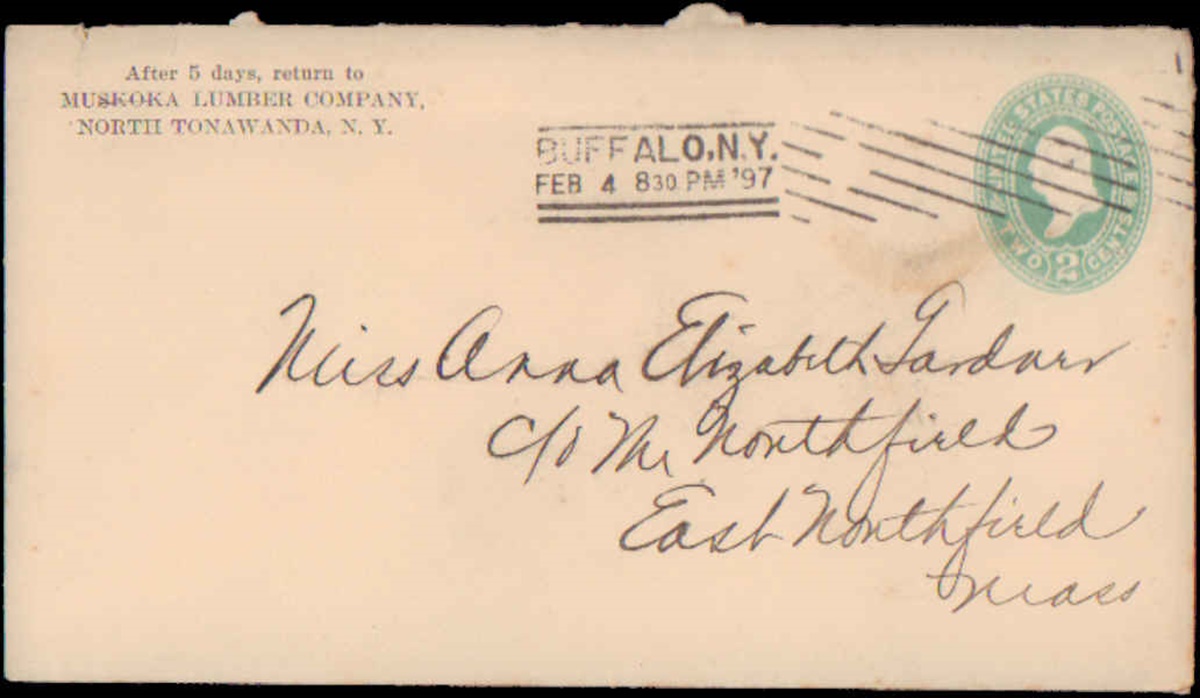 After 5 days, return to
MUSKOKA LUMBER COMPANY,
NORTH TONAWANDA, N. Y.
BUFFALO, N.Y.
FEB 4 830 PM '97
UNITED STATES POSTAGE
TWO 2 CENTS
Miss Anna Elizabeth Gardner
c/o Mr Northfield
East Northfield
Mass